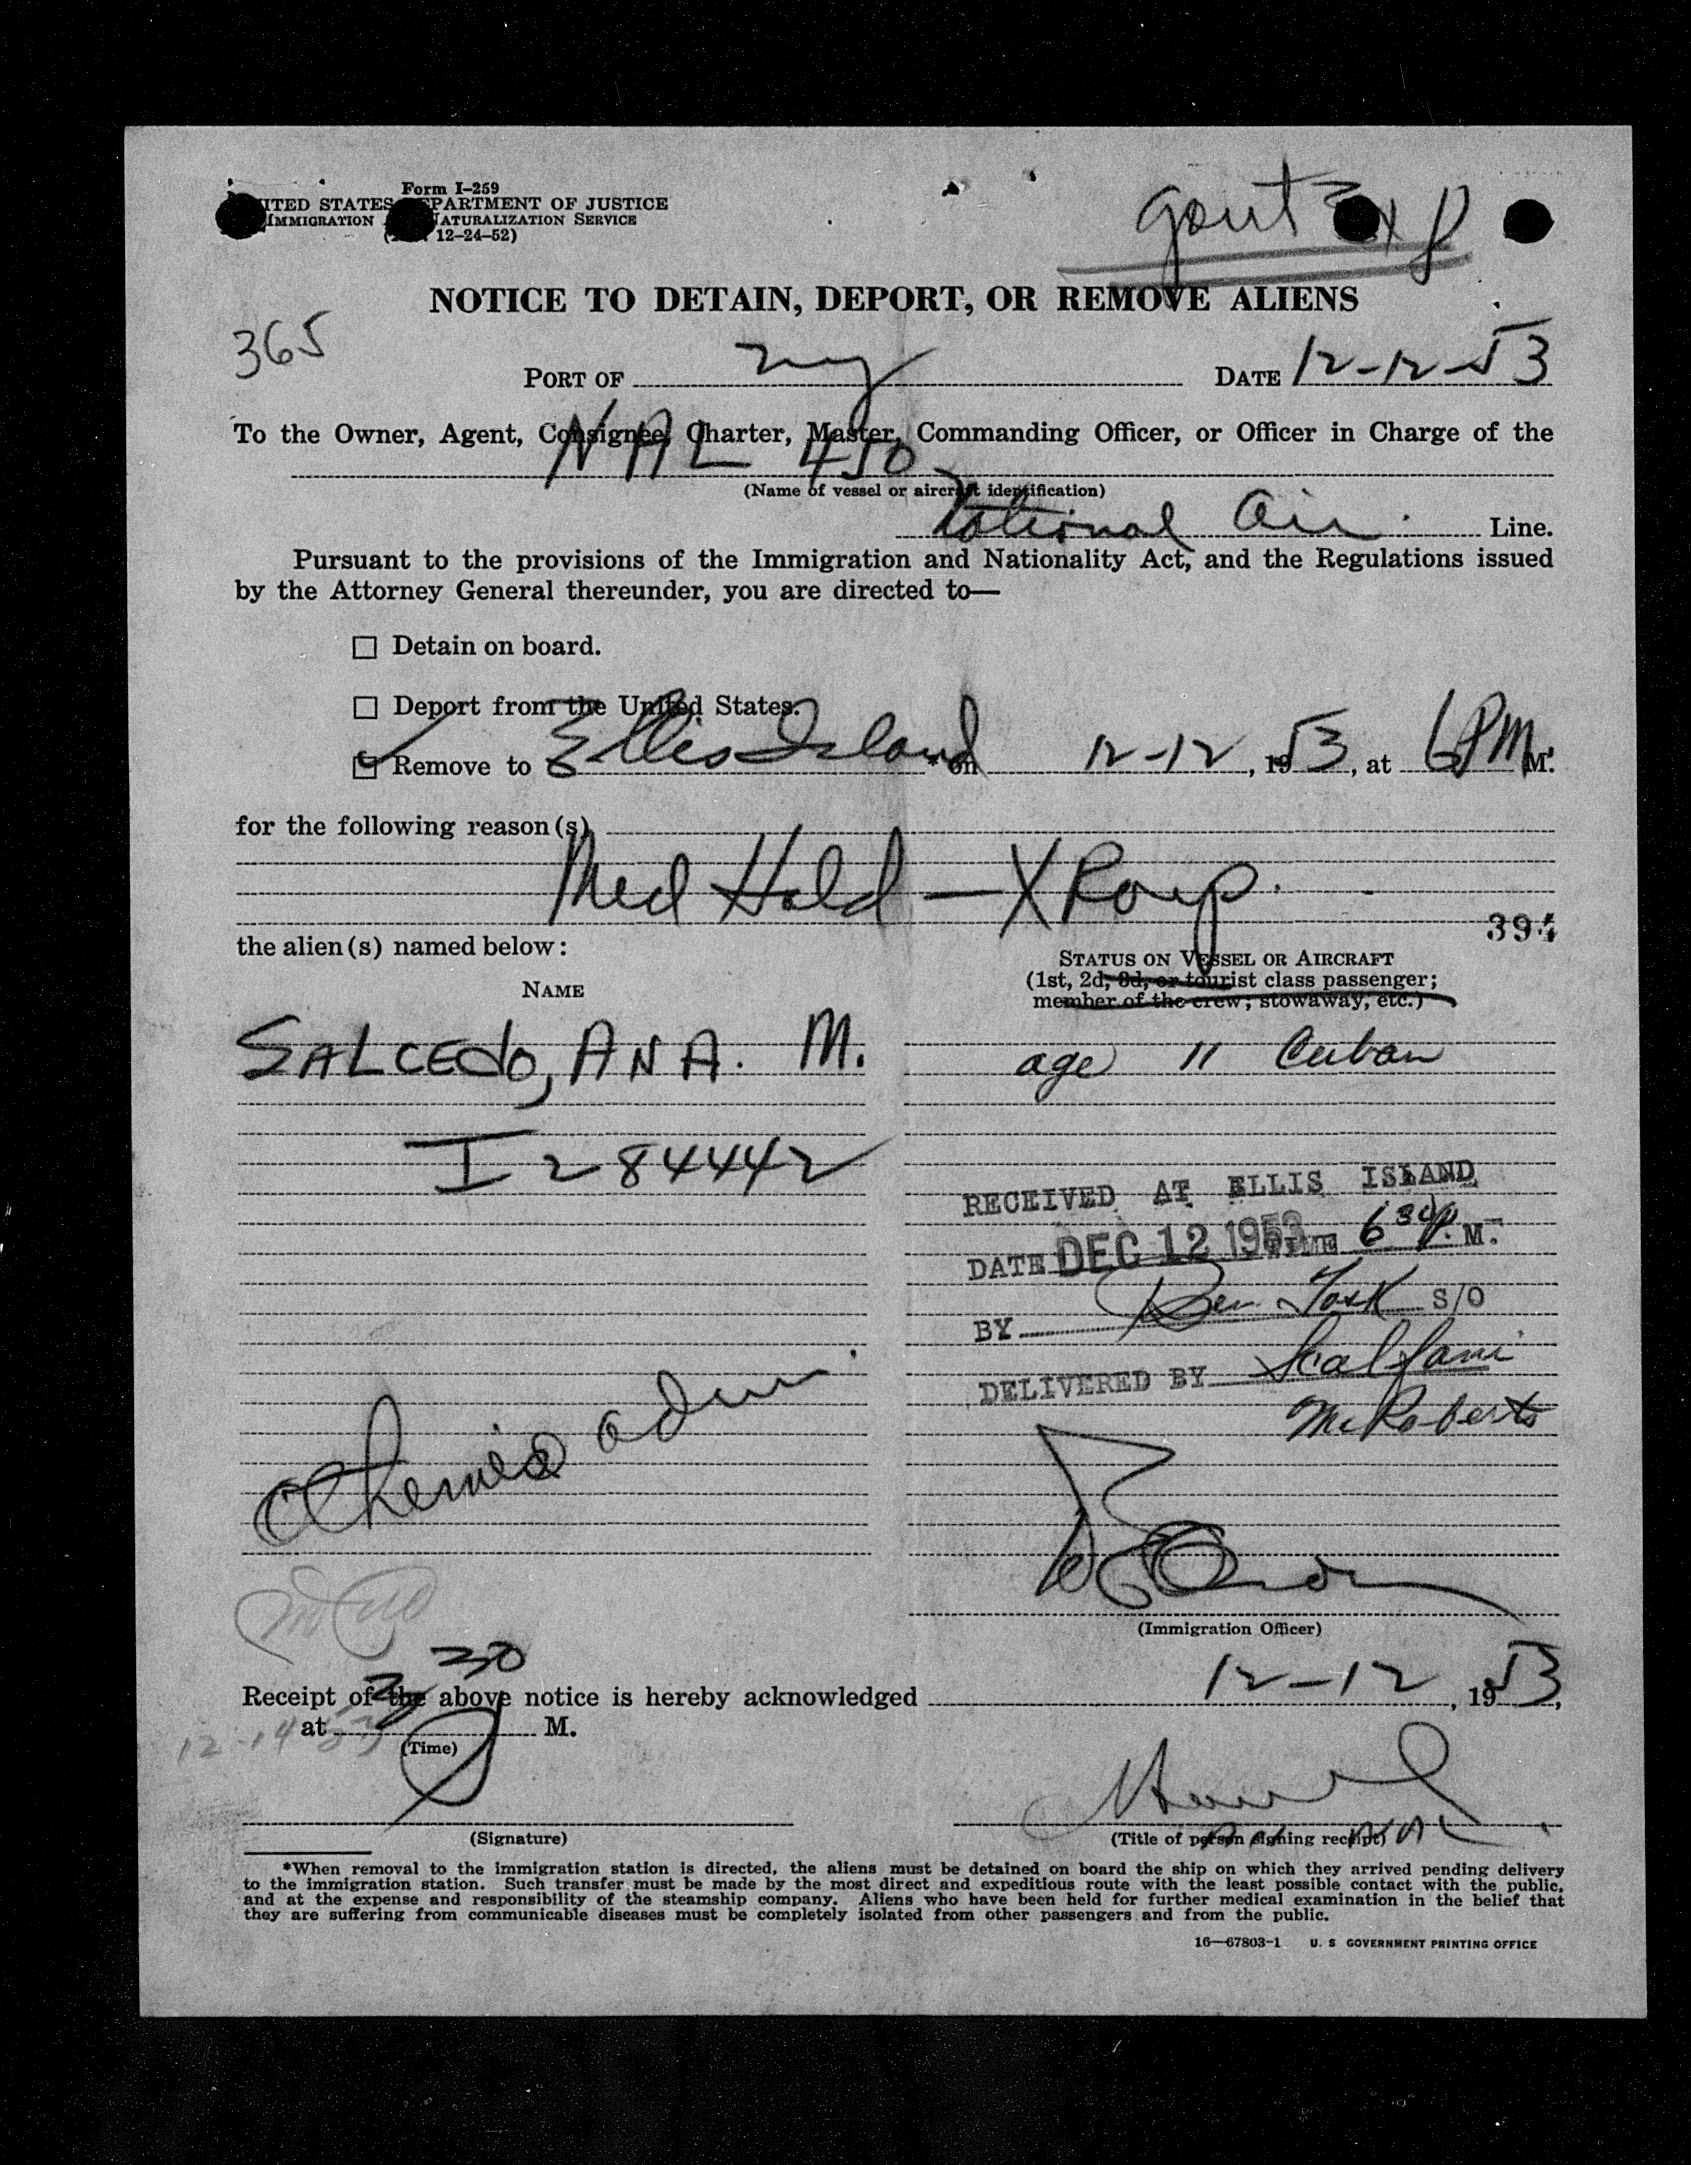 Form I-259
ITED STATES PARTMENT OF JUSTICE
IMMIGRATION NATURALIZATION SERVICE
12-24-52)
govt
NOTICE TO DETAIN, DEPORT, OR REMOVE ALIENS
365
PORT OF NY DATE 12-12-53
To the Owner, Agent, Consignee, Charter, Master, Commanding Officer, or Officer in Charge of the
NAL 450
(Name of vessel or aircraft identification)
National Air Line.
Pursuant to the provisions of the Immigration and Nationality Act, and the Regulations issued
by the Attorney General thereunder, you are directed to—
Detain on board.
Deport from the United States.
Remove to Ellis Island *on 12-12, 1953, at 6 PM M.
for the following reason(s)
Med Hold — X Ray
394
the alien(s) named below:
STATUS ON VESSEL OR AIRCRAFT
(1st, 2d, 3d, or tourist class passenger;
member of the crew; stowaway, etc.)
NAME
SALCEDO, ANA. M. age 11 Cuban
I 284442
RECEIVED AT ELLIS ISLAND
DATE DEC 12 1953 TIME 6 30 P. M.
BY Ben S/O
DELIVERED BY
McRoberts
(Immigration Officer)
3 30
Receipt of the above notice is hereby acknowledged 12-12, 1953,
at M.
12-14-53
(Time)
(Signature)
(Title of person signing receipt)
*When removal to the immigration station is directed, the aliens must be detained on board the ship on which they arrived pending delivery
to the immigration station. Such transfer must be made by the most direct and expeditious route with the least possible contact with the public,
and at the expense and responsibility of the steamship company. Aliens who have been held for further medical examination in the belief that
they are suffering from communicable diseases must be completely isolated from other passengers and from the public.
16—67803-1 U. S GOVERNMENT PRINTING OFFICE